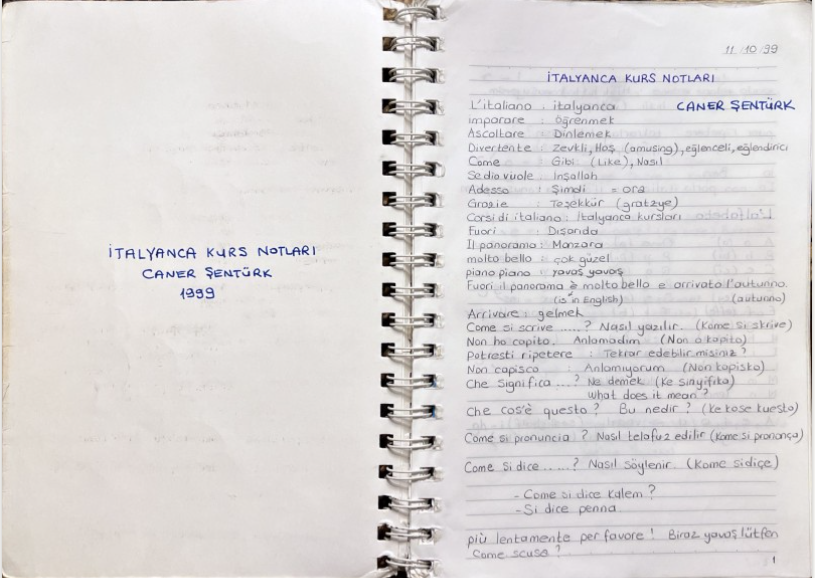 İTALYANCA KURS NOTLARI
CANER ŞENTÜRK
1999
11/10/99
İTALYANCA KURS NOTLARI
L'italiano : italyanca CANER ŞENTÜRK
imparare : Öğrenmek
Ascoltare : Dinlemek
Divertente : Zevkli, Hoş (amusing), eğlenceli, eğlendirici
Come : Gibi (Like), Nasıl
Se dio virole : İnşallah
Adesso : Şimdi = ora
Grazie : Teşekkür (gratzye)
Corsi di italiano : İtalyanca kursları
Fuori : Dışarıda
Il panorama : Manzara
molto bello : çok güzel
piano piano : yavaş yavaş
Fuori il panorama è molto bello e arrivato l'autunno.
(is in English) (autunno)
Arrivare : gelmek
Come si scrive .....? Nasıl yazılır. (Kome si skrive)
Non ho capito. Anlamadım (Non o kapito)
Potresti ripetere : Tekrar edebilir misiniz?
Non capisco : Anlamıyorum (Non kapisko)
Che significa ....? Ne demek (Ke sinyifika)
What does it mean?
Che cos'è questo? Bu nedir? (Ke kose kuesto)
Come si pronuncia? Nasıl telafuz edilir (Kome si pronança)
Come si dice .....? Nasıl söylenir. (Kome si diçe)
- Come si dice kalem?
- Si dice penna
più lentamente per favore! Biraz yavaş lütfen
Come scusa?
1